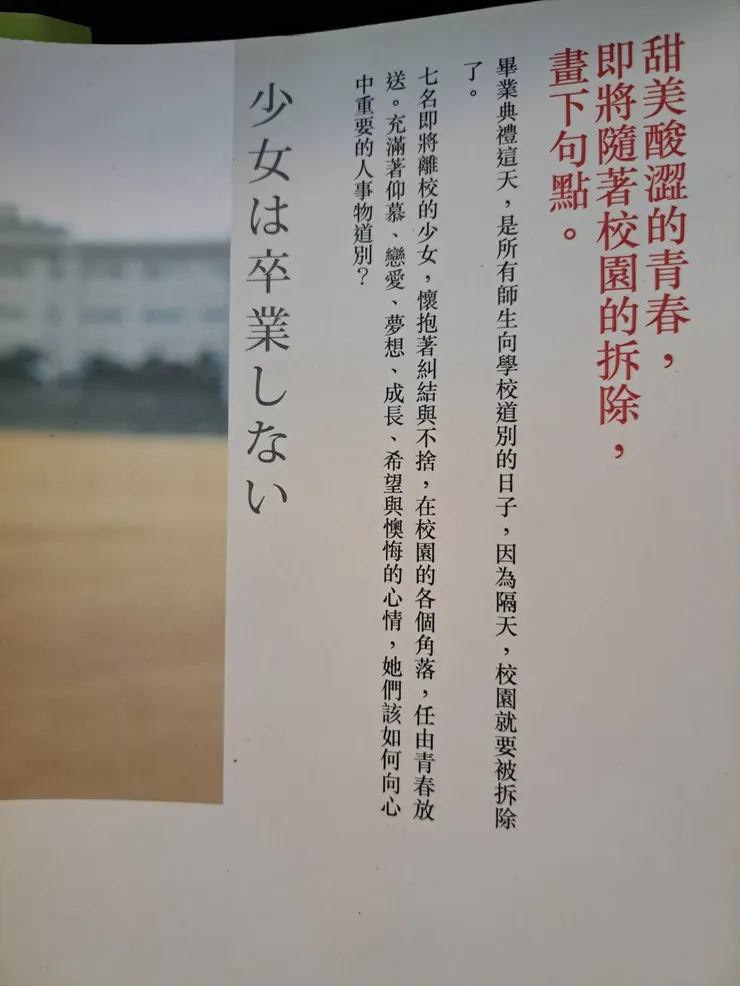 甜美酸澀的青春，
即將隨著校園的拆除，
畫下句點。
畢業典禮這天，是所有師生向學校道別的日子，因為隔天，校園就要被拆除
了。
七名即將離校的少女，懷抱著糾結與不捨，在校園的各個角落，任由青春放
送。充滿著仰慕、戀愛、夢想、成長、希望與懊悔的心情，她們該如何向心
中重要的人事物道別？
少女は卒業しない